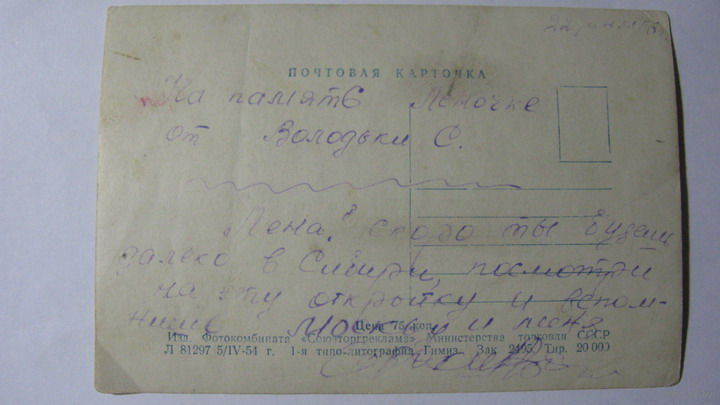 ПОЧТОВАЯ КАРТОЧКА
На память Леночке
от Володьки С.
Лена! скоро ты будешь
далеко в Сибири, посмотри
на эту открытку и вспом-
нишь Москву и меня
Цена 75 коп.
Изд. Фотокомбината «Союзторгреклама» Министерства торговли СССР
Л 81297 5/IV-54 г. 1-я типо-литография Гимиз. Зак 2495 Тир. 20 000